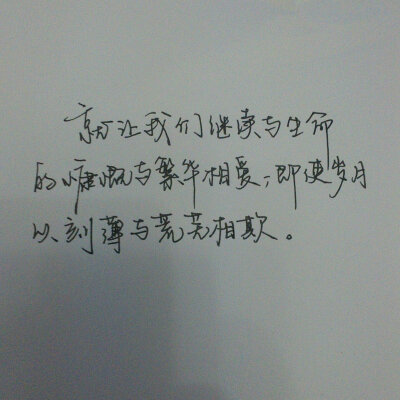 就让我们继续与生命
的慷慨与繁华相爱,即使岁月
以刻薄与荒芜相欺。